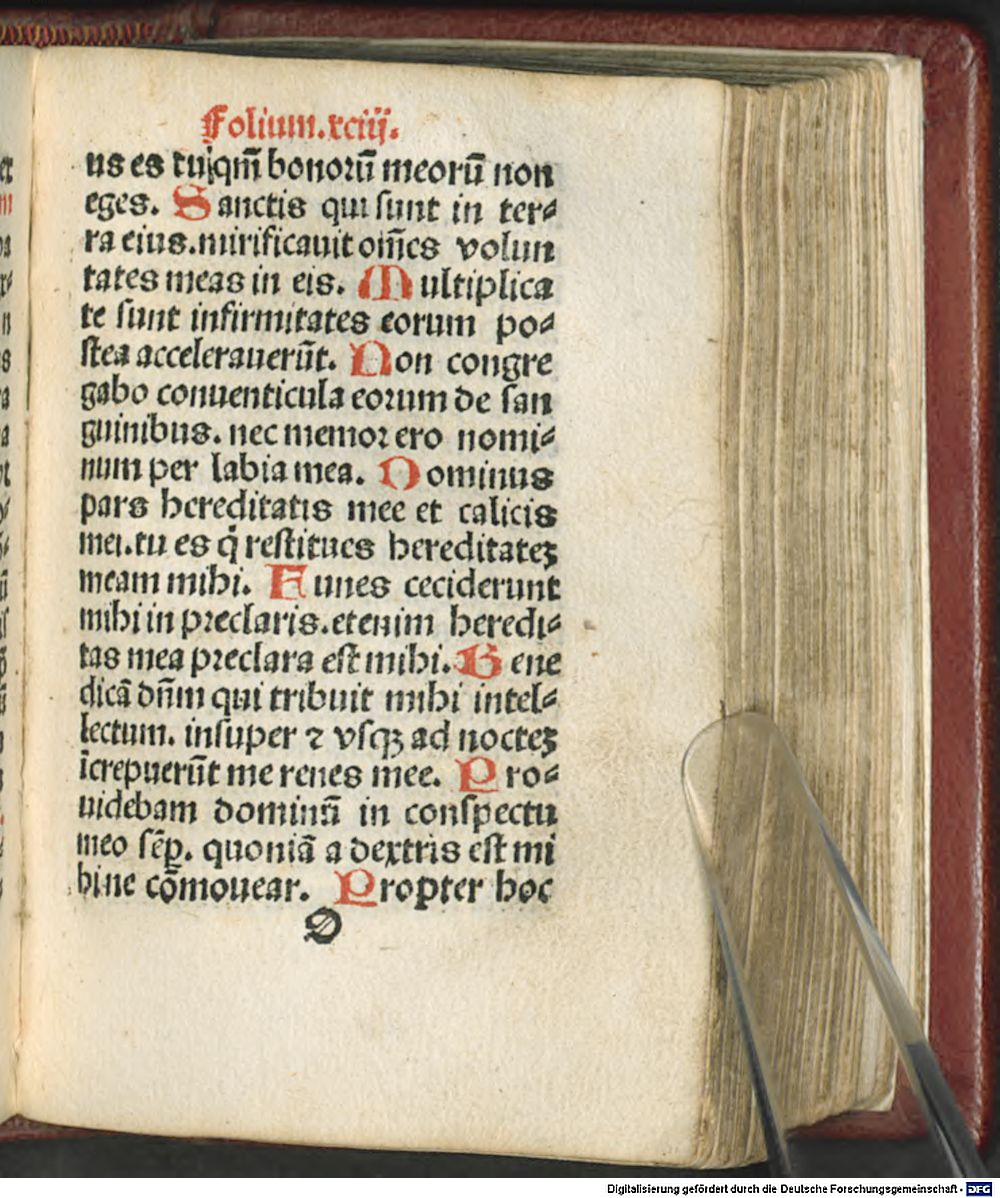 Folium.xciij.
us es tu,qm̄ bonoꝛū meoꝛū non
eges. Sanctis qui ſunt in ter⸗
ra eius.mirificauit om̄es volun
tates meas in eis. Multiplica
te ſunt infirmitates eorum po⸗
ſtea accelerauerūt. Non congre
gabo conuenticula eoꝛum de ſan
guinibus. nec memoꝛ ero nomi⸗
num per labia mea. Dominus
pars hereditatis mee et calicis
mei.tu es q̇ reſtitues hereditateꝫ
meam mihi. Funes ceciderunt
mihi in pꝛeclaris.etenim heredi⸗
tas mea pꝛeclara eſt mihi. Bene
dicā dn̄m qui tribuit mihi intel⸗
lectum. inſuper ⁊ vſqꝫ ad nocteꝫ
īcrepuerūt me renes mee. Pro⸗
uidebam dominū in conſpectu
meo ſēꝑ. quoniā a dextris eſt mi
hi ne cōmouear. Propter hoc
D
Digitalisierung gefördert durch die Deutsche Forschungsgemeinschaft - DFG